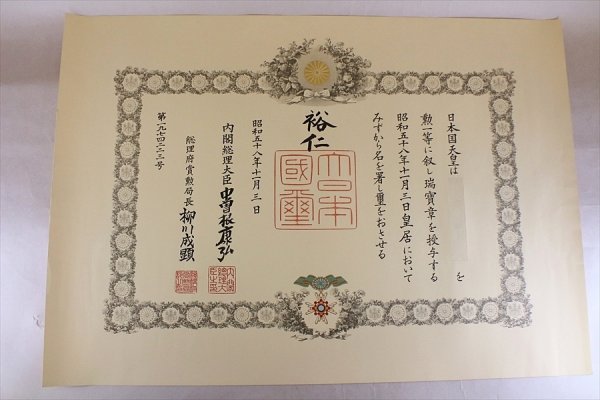 日本国天皇は
を
勲一等に叙し瑞寶章を授与する
昭和五十八年十一月三日皇居において
みずから名を署し璽をおさせる
裕仁
大日本國璽
昭和五十八年十一月三日
内閣総理大臣 中曽根康弘
総理府賞勲局長 柳川成顕
第一九七四二二三号